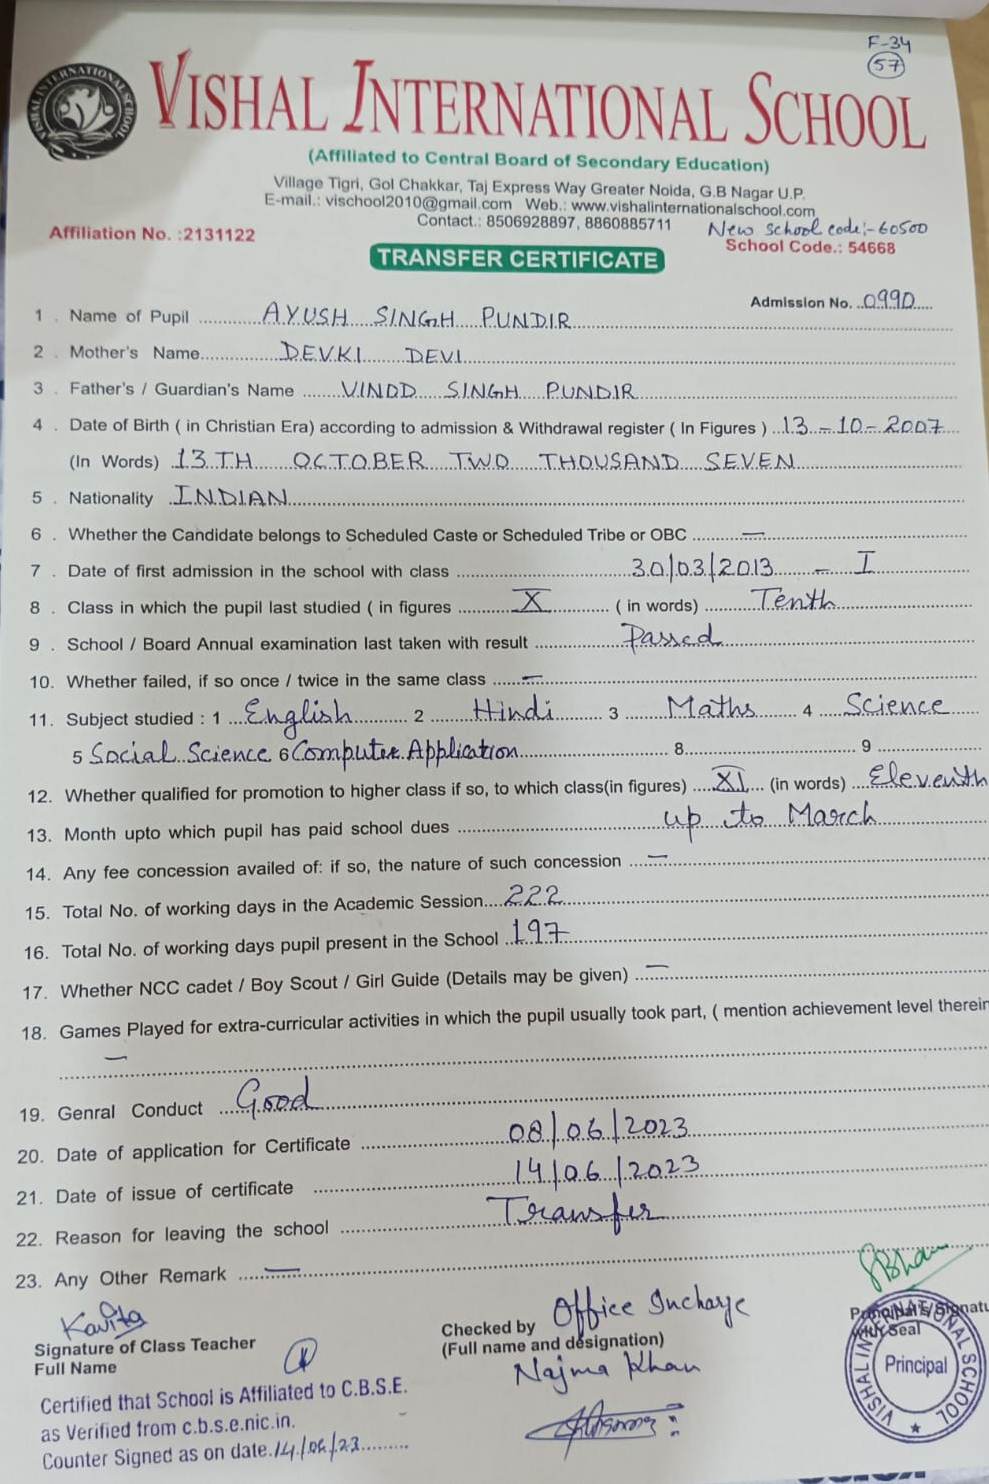 F-34
57
VISHAL INTERNATIONAL SCHOOL
VISHAL INTERNATIONAL SCHOOL
(Affiliated to Central Board of Secondary Education)
Village Tigri, Gol Chakkar, Taj Express Way Greater Noida, G.B Nagar U.P.
E-mail.: vischool2010@gmail.com Web.: www.vishalinternationalschool.com
Contact.: 8506928897, 8860885711
New school code:- 60500
Affiliation No. :2131122
School Code.: 54668
TRANSFER CERTIFICATE
Admission No. 0990
1 . Name of Pupil AYUSH SINGH PUNDIR
2 . Mother's Name DEVKI DEVI
3 . Father's / Guardian's Name VINOD SINGH PUNDIR
4 . Date of Birth ( in Christian Era) according to admission & Withdrawal register ( In Figures ) 13-10-2007
(In Words) 13TH OCTOBER TWO THOUSAND SEVEN
5 . Nationality INDIAN
6 . Whether the Candidate belongs to Scheduled Caste or Scheduled Tribe or OBC —
7 . Date of first admission in the school with class 30/03/2013 - I
8 . Class in which the pupil last studied ( in figures X ( in words) Tenth
9 . School / Board Annual examination last taken with result Passed
10. Whether failed, if so once / twice in the same class —
11. Subject studied : 1 English 2 Hindi 3 Maths 4 Science
5 Social Science 6 Computer Application 8 9
12. Whether qualified for promotion to higher class if so, to which class(in figures) XI (in words) Eleventh
13. Month upto which pupil has paid school dues up to March
14. Any fee concession availed of: if so, the nature of such concession —
15. Total No. of working days in the Academic Session 222
16. Total No. of working days pupil present in the School 197
17. Whether NCC cadet / Boy Scout / Girl Guide (Details may be given) —
18. Games Played for extra-curricular activities in which the pupil usually took part, ( mention achievement level therein
—
19. Genral Conduct Good
20. Date of application for Certificate 08/06/2023
21. Date of issue of certificate 14/06/2023
22. Reason for leaving the school Transfer
23. Any Other Remark —
Kavita
Signature of Class Teacher
Full Name
Office Incharge
Checked by
(Full name and designation)
Najma Khan
Principal's Signatu
with Seal
VISHAL INTERNATIONAL SCHOOL
Principal
Certified that School is Affiliated to C.B.S.E.
as Verified from c.b.s.e.nic.in.
Counter Signed as on date. 14/06/23